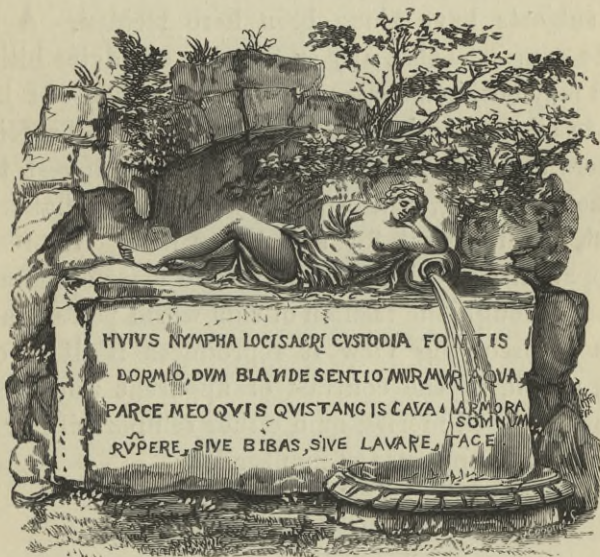 HVIVS NYMPHA LOCI SACRI CVSTODIA FONTIS
DORMIO, DVM BLANDE SENTIO MVRMVR AQUA
PARCE MEO QVIS QVIS TANG IS CAVA MARMORA
SOMNVM
RVPERE, SIVE BIBAS, SIVE LAVARE, TACE